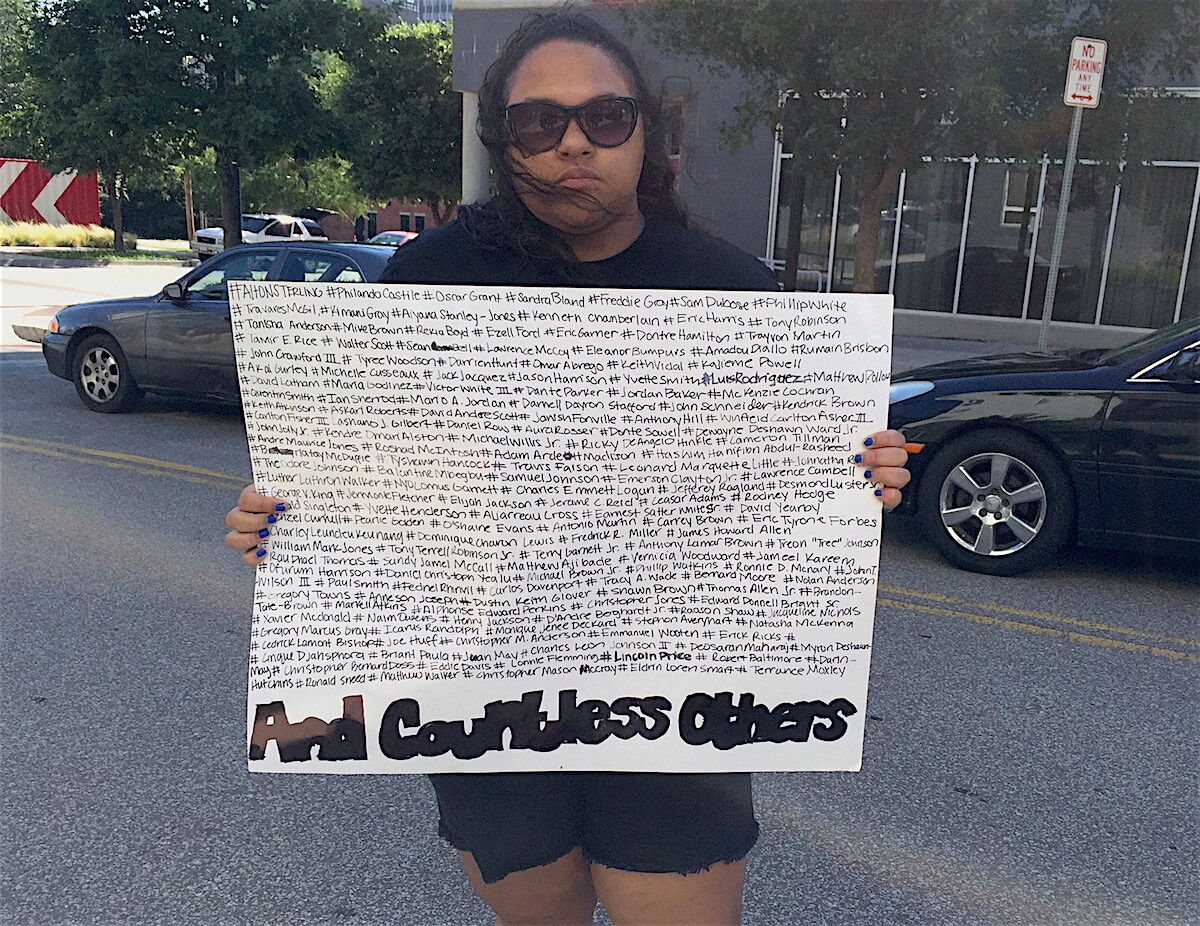 NO
PARKING
ANY
TIME
#ALTONSTERLING #Philando Castile #Oscar Grant #Sandra Bland #Freddie Gray #Sam Dubose #Phillip White
#Travares McGill #Kimani Gray #Aiyana Stanley-Jones #Kenneth Chamberlain #Eric Harris #Tony Robinson
#Tanisha Anderson #Mike Brown #Rekia Boyd #Ezell Ford #Eric Garner #Dontre Hamilton #Trayvon Martin
#Tamir E. Rice #Walter Scott #Sean #Lawrence McCoy #Eleanor Bumpurs #Amadou Diallo #Rumain Brisbon
#John Crawford III #Tyree Woodson #Darrien Hunt #Omar Abrego #Keith Vidal #Kajieme Powell
#Akai Gurley #Michelle Cusseaux #Jack Jacquez #Jason Harrison #Yvette Smith #Luis Rodriguez #Matthew
#David Latham #Maria Godinez #Victor White III #Dante Parker #Jordan Baker #McKenzie Cochran
#Quentin Smith #Ian Sherrod #Mario A. Jordan #Darnell Dayron Stafford #John Schneider #Kendrick Brown
#Keith Atkinson #Askari Roberts #David Andre Scott #Anthony Hill #Winfield Carlton Fisher III
#Lashano J. Gilbert #Daniel Rosa #Aura Rosser #Dante Sowell #Dewayne Deshawn Ward Jr.
#John Jolly Jr. #Kendre Omari Alston #Michael Willis Jr. #Ricky DeAngelo Hinkle #Cameron Tillman
#Andre Maurice Jones #Roshad McIntosh #Adam Madison #Hashim Hanif Ibn Abdul-Rasheed
McDade #Tyshawn Hancock #Travis Faison #Leonard Marquette Little #Johnathan
#Theodore Johnson #Ballantine Mbegbu #Samuel Johnson #Emerson Clayton Jr. #Lawrence Cambell
#Luther Lathron Walker #Garnett #Charles Emmett Logan #Jeffery Ragland #Desmond Luster
#George V. King #Jermonte Fletcher #Elijah Jackson #Jerame C. Reid #Ceasar Adams #Rodney Hodge
Singleton #Yvette Henderson #Aljarreau Cross #Earnest Satterwhite Sr #David Yearby
Curnell #Pearlie Golden #O'Shaine Evans #Antonio Martin #Carrey Brown #Eric Tyrone Forbes
#Charley Leundeu Keunang #Dominique Charon Lewis #Fredrick R. Miller #James Howard Allen
#William Mark Jones #Tony Terrell Robinson Jr. #Terry Garnett Jr. #Anthony Kamar Brown #Treon "Tree" Johnson
#Rauphael Thomas #Sandy Jamel McCall #Matthew Ajibade #Vernicia Woodward #Jameel Kareem
#Ofurum Harrison #Daniel Christoph Yealu #Michael Brown Jr. #Phillip Watkins #Ronnie D. McNary #John T.
Wilson III #Paul Smith #Carlos Davenport #Tracy A. Wade #Bernard Moore #Nolan Anderson
#Gregory Towns #Anneson Joseph #Dustin Keith Glover #Shawn Brown #Thomas Allen Jr. #Brandon-
Tate-Brown #Markell Atkins #Alphonse Edward Perkins #Christopher Jones #Edward Donnell Bright Sr.
#Xavier McDonald #Naim Owens #Henry Jackson #D'Andre Berghardt Jr. #Raason Shaw #Jacqueline Nichols
#Gregory Marcus Gray #Icarus Randolph #Monique Jenee Deckard #Stephon Averyhart #Natasha McKenna
#Cedrick Lamont Bishop #Joe Huff #Christopher M. Anderson #Emmanuel Wooten #Erick Ricks #
#Cinque DJahspora #Briant Paula #Juan May #Charles Leon Johnson II #Deosaran Maharaj #Myron Deshawn
May #Christopher Bernard Doss #Eddie Davis #Lonnie Flemming #Lincoln Price #Robert Baltimore #Darin-
Hutchins #Ronald Sneed #Matthew Walker #Christopher Mason McCray #Eldrin Loren Smart #Terrance Moxley
And Countless Others